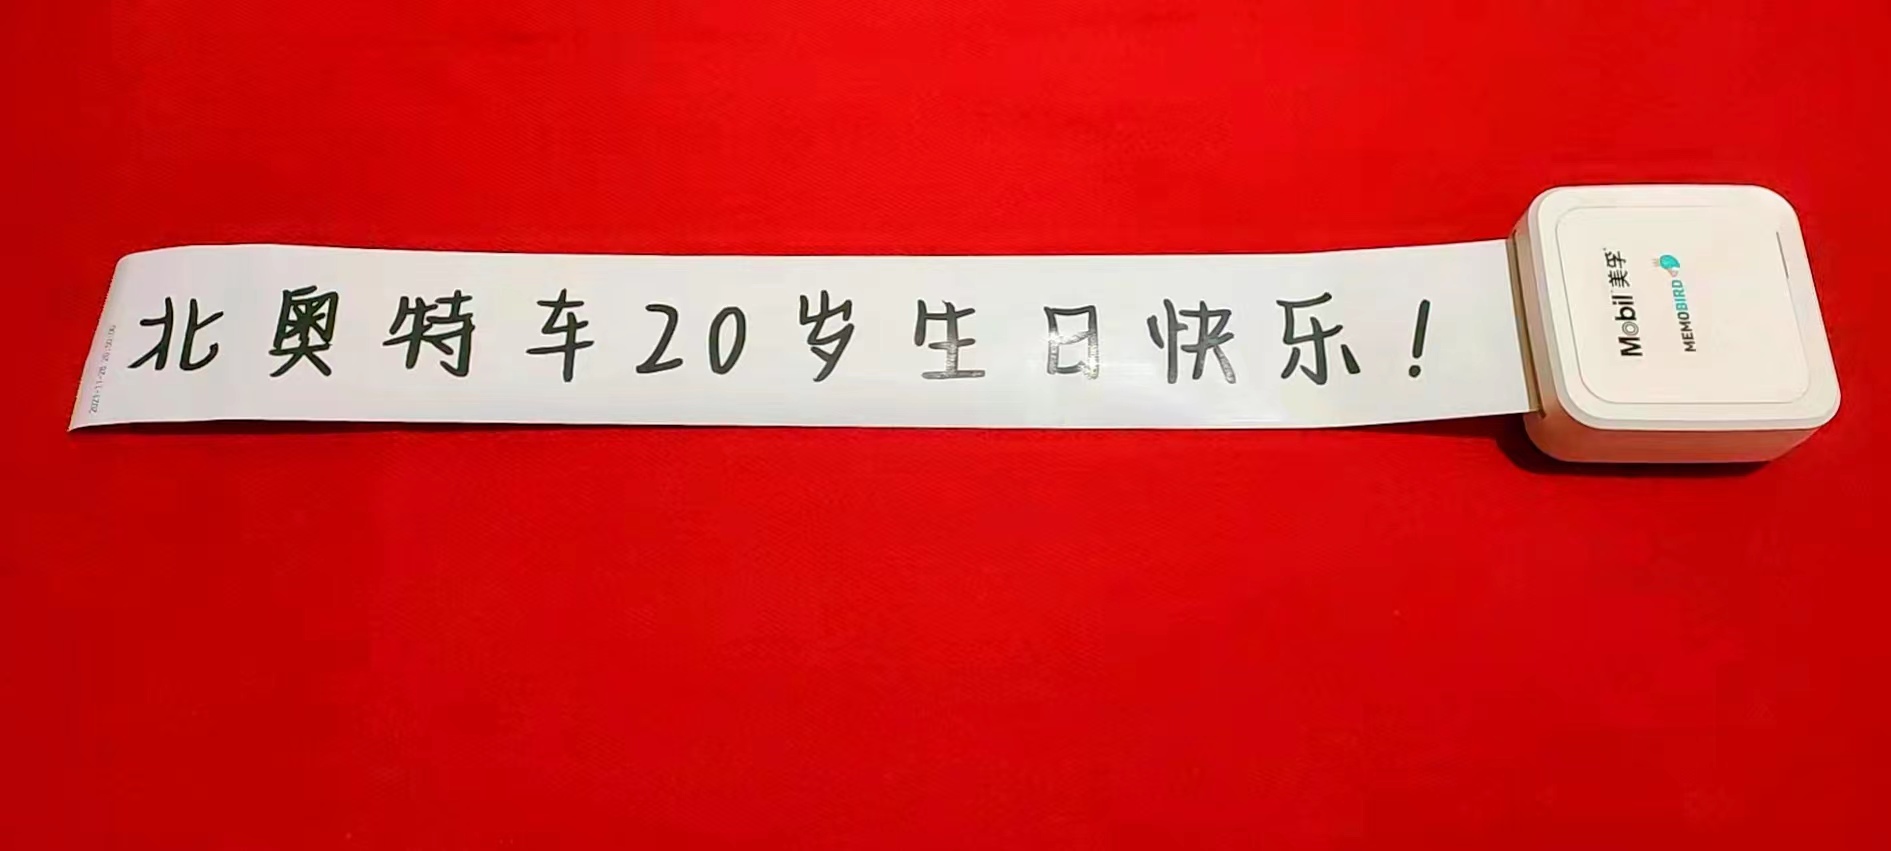 北奥特车20岁生日快乐！
Mobil 美孚
MEMOBIRD